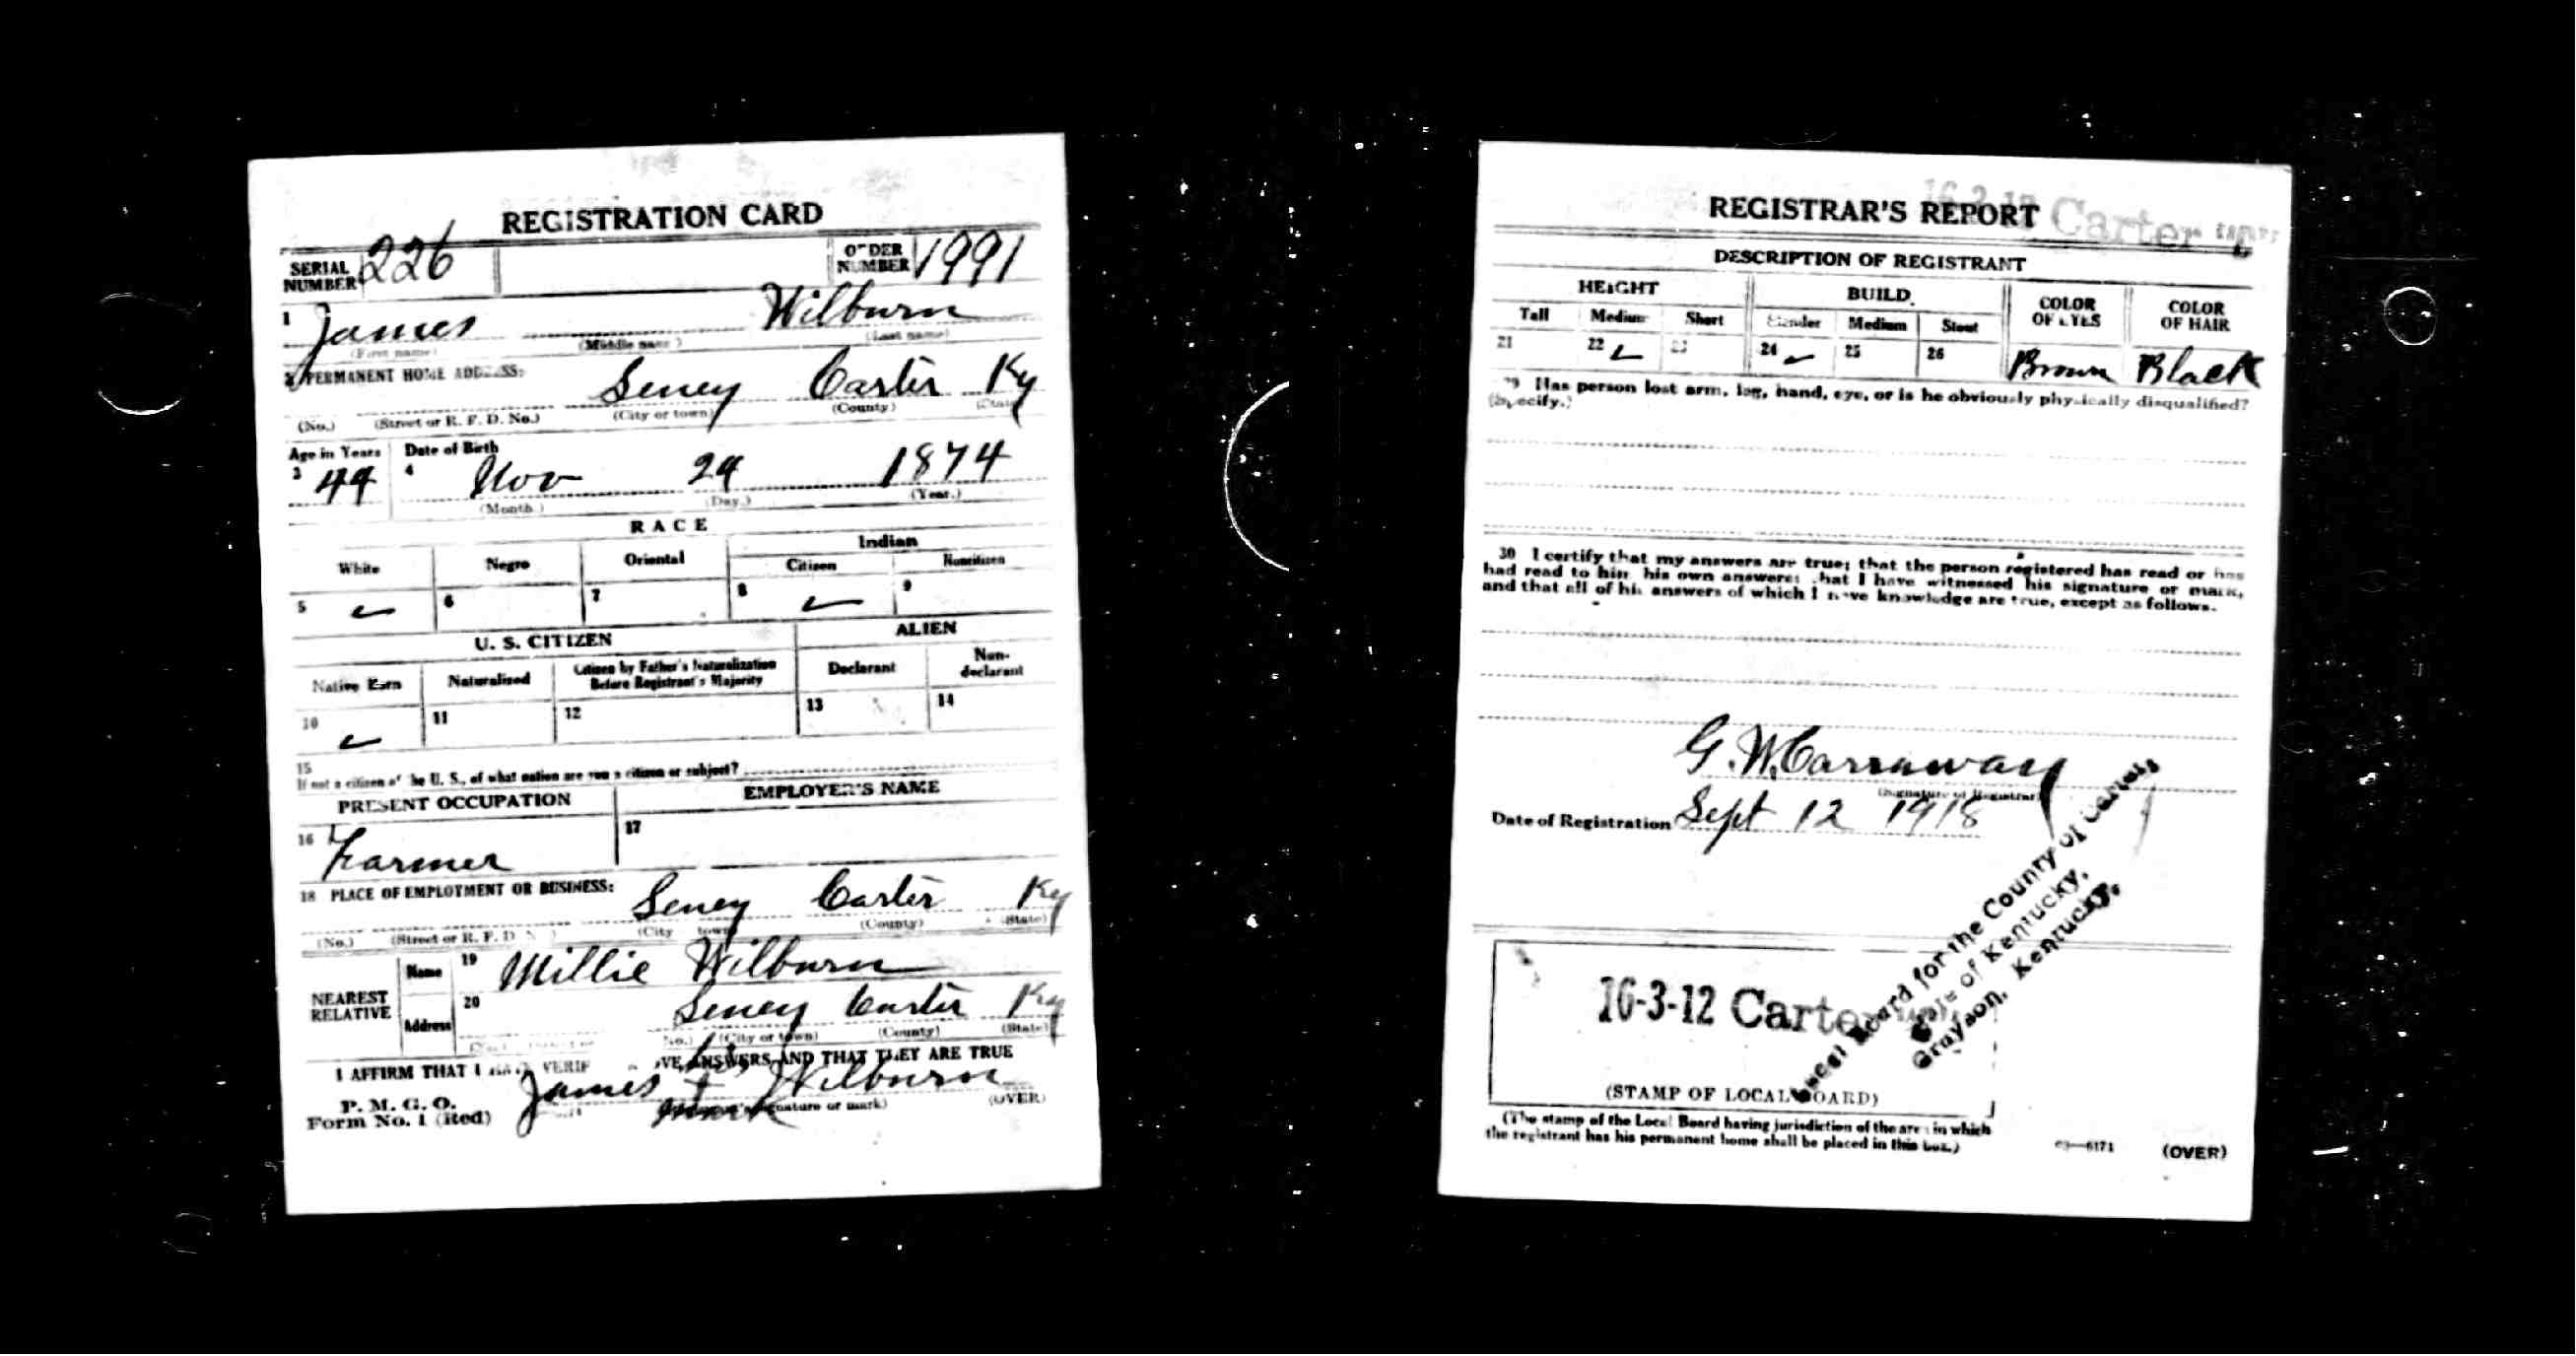 REGISTRATION CARD
SERIAL NUMBER 226
ORDER NUMBER 1991
1 James Wilburn
(First name) (Middle name) (Last name)
2 PERMANENT HOME ADDRESS:
Seney Carter Ky
(No.) (Street or R. F. D. No.) (City or town) (County) (State)
Age in Years Date of Birth
3 44 4 Nov 29 1874
(Month.) (Day.) (Year.)
RACE
White Negro Oriental Indian
Citizen Noncitizen
5 ✓ 6 7 8 ✓ 9
U. S. CITIZEN ALIEN
Native Born Naturalized Citizen by Father's Naturalization Before Registrant's Majority Declarant Non-declarant
10 ✓ 11 12 13 14
15
If not a citizen of the U. S., of what nation are you a citizen or subject?
PRESENT OCCUPATION EMPLOYER'S NAME
16 Farmer 17
18 PLACE OF EMPLOYMENT OR BUSINESS:
Seney Carter Ky
(No.) (Street or R. F. D. (City town) (County) (State)
NEAREST RELATIVE
Name 19 Millie Wilburn
Address 20 Seney Carter Ky
No.) (City or town) (County) (State)
I AFFIRM THAT I HAVE VERIF OVE ANSWERS AND THAT THEY ARE TRUE
P. M. G. O.
Form No. 1 (Red)
his
James + Wilburn
mark
signature or mark) (OVER)
REGISTRAR'S REPORT
16-3-12 Carter
DESCRIPTION OF REGISTRANT
HEIGHT BUILD COLOR OF EYES COLOR OF HAIR
Tall Medium Short Slender Medium Stout
21 22 ✓ 23 24 ✓ 25 26 Brown Black
29 Has person lost arm, leg, hand, eye, or is he obviously physically disqualified?
(Specify.)
30 I certify that my answers are true; that the person registered has read or has
had read to him his own answers; that I have witnessed his signature or mark,
and that all of his answers of which I have knowledge are true, except as follows.
G. W. Carraway
(Signature of Registrar)
Date of Registration Sept 12 1918
16-3-12 Carter
Local Board for the County of Carter
State of Kentucky,
Grayson, Kentucky.
(STAMP OF LOCAL BOARD)
(The stamp of the Local Board having jurisdiction of the area in which
the registrant has his permanent home shall be placed in this box.)
03—6171 (OVER)